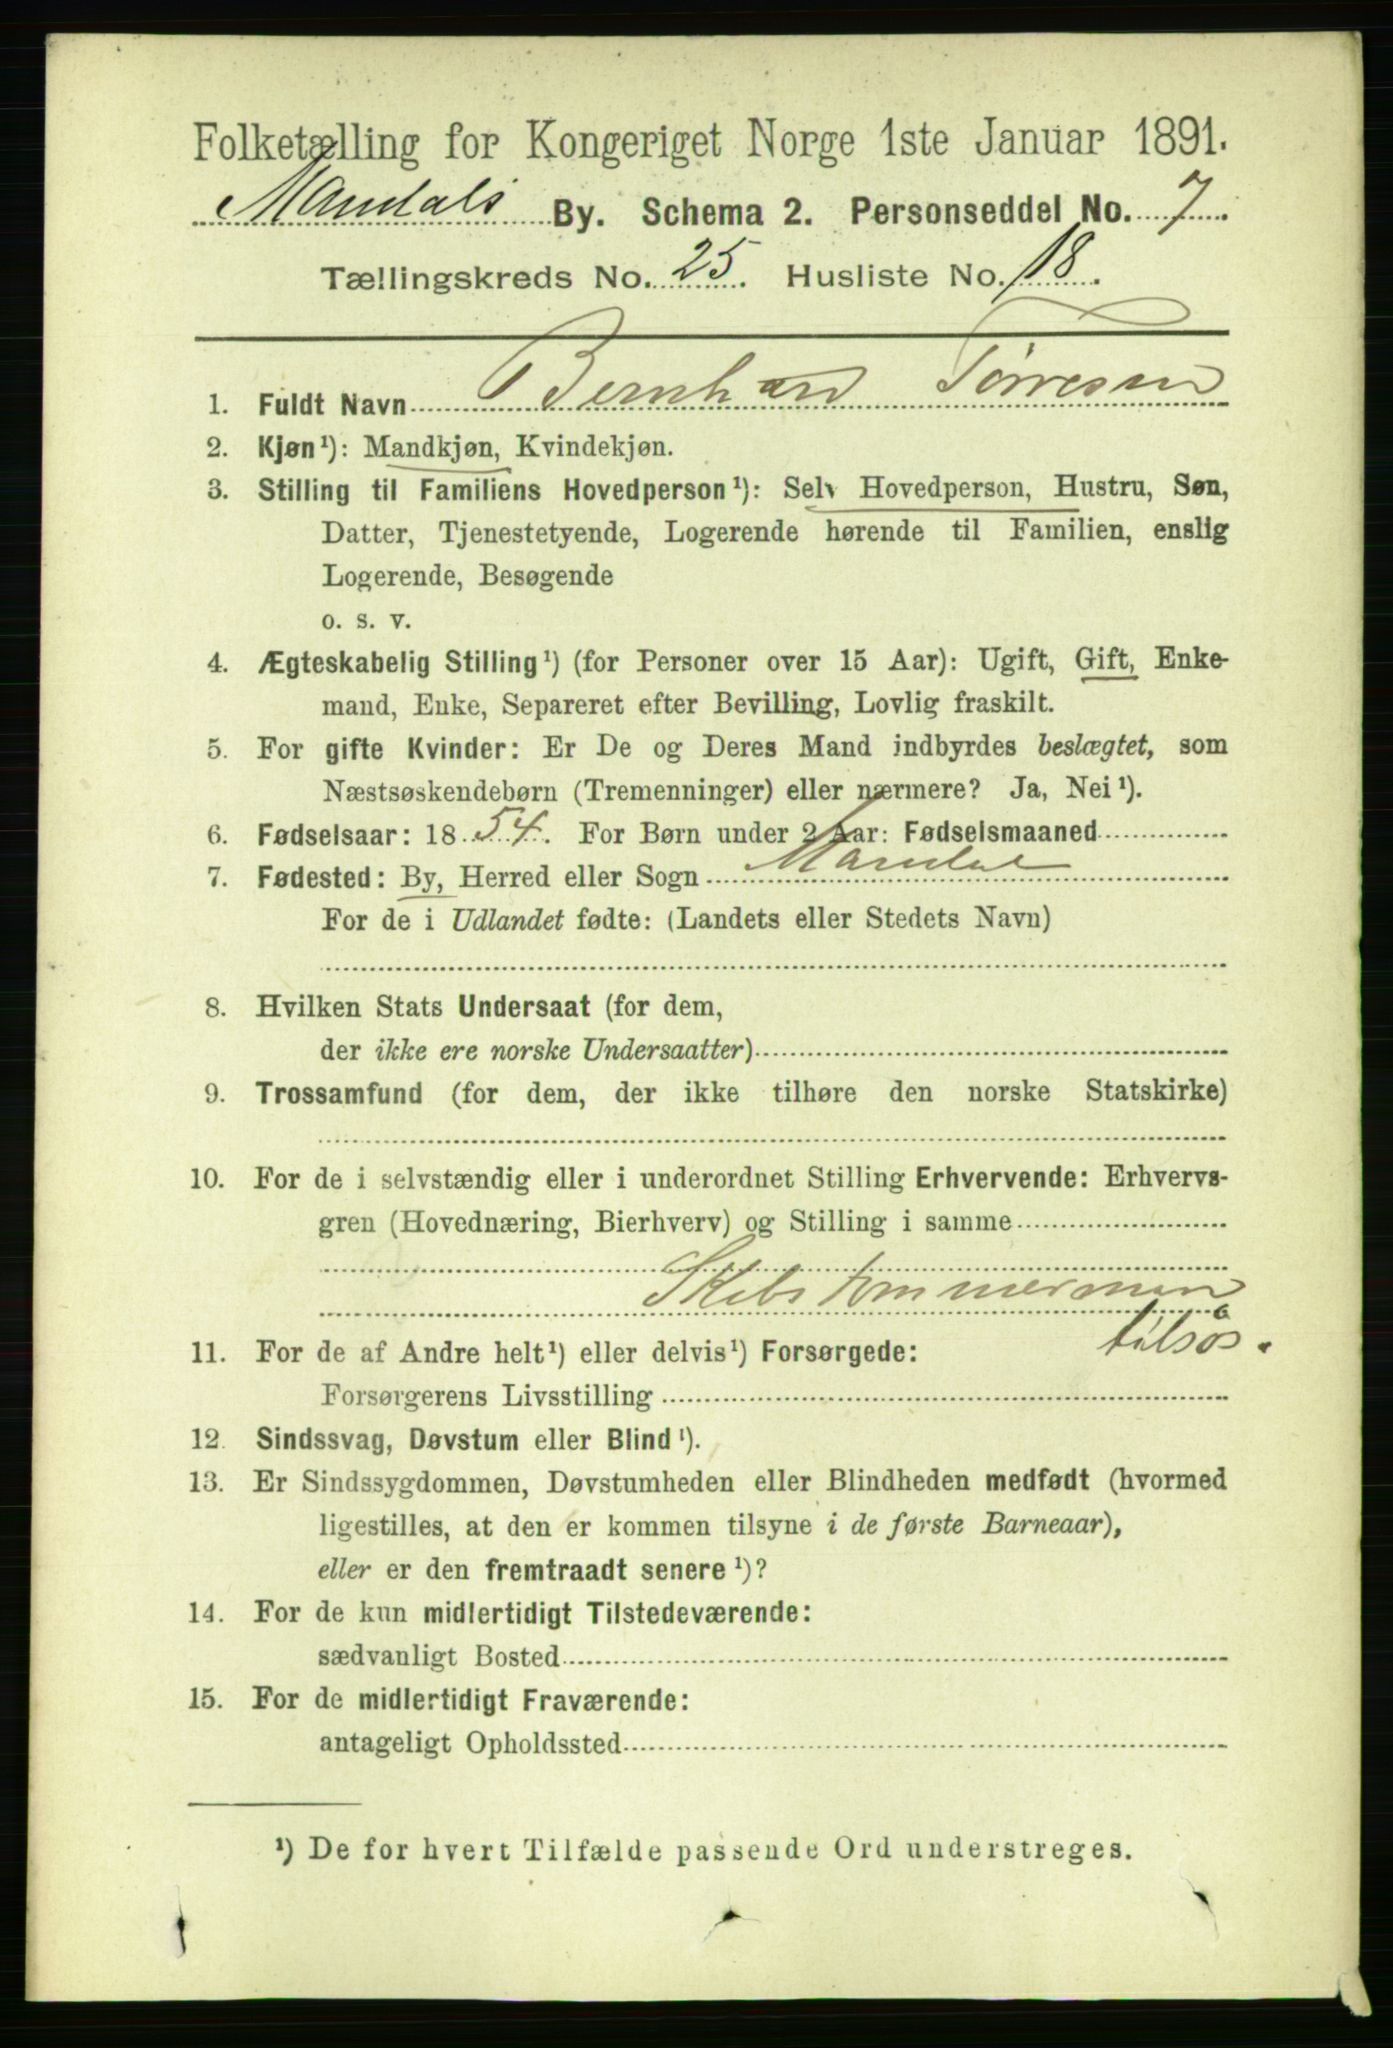 Folketælling for Kongeriget Norge 1ste Januar 1891.
Mandals By. Schema 2. Personseddel No. 7.
Tællingskreds No. 25. Husliste No. 18.
1. Fuldt Navn Bernhard Tørresen
2. Kjøn¹): Mandkjøn, Kvindekjøn.
3. Stilling til Familiens Hovedperson¹): Selv Hovedperson, Hustru, Søn,
Datter, Tjenestetyende, Logerende hørende til Familien, enslig
Logerende, Besøgende
o. s. v.
4. Ægteskabelig Stilling¹) (for Personer over 15 Aar): Ugift, Gift, Enke-
mand, Enke, Separeret efter Bevilling, Lovlig fraskilt.
5. For gifte Kvinder: Er De og Deres Mand indbyrdes beslægtet, som
Næstsøskendebørn (Tremenninger) eller nærmere? Ja, Nei¹).
6. Fødselsaar: 1854. For Børn under 2 Aar: Fødselsmaaned
7. Fødested: By, Herred eller Sogn Mandal
For de i Udlandet fødte: (Landets eller Stedets Navn)
8. Hvilken Stats Undersaat (for dem,
der ikke ere norske Undersaatter)
9. Trossamfund (for dem, der ikke tilhøre den norske Statskirke)
10. For de i selvstændig eller i underordnet Stilling Erhvervende: Erhvervs-
gren (Hovednæring, Bierhverv) og Stilling i samme
Skibstømmerman
tilsøs.
11. For de af Andre helt¹) eller delvis¹) Forsørgede:
Forsørgerens Livsstilling
12. Sindssvag, Døvstum eller Blind¹).
13. Er Sindssygdommen, Døvstumheden eller Blindheden medfødt (hvormed
ligestilles, at den er kommen tilsyne i de første Barneaar),
eller er den fremtraadt senere¹)?
14. For de kun midlertidigt Tilstedeværende:
sædvanligt Bosted
15. For de midlertidigt Fraværende:
antageligt Opholdssted
¹) De for hvert Tilfælde passende Ord understreges.